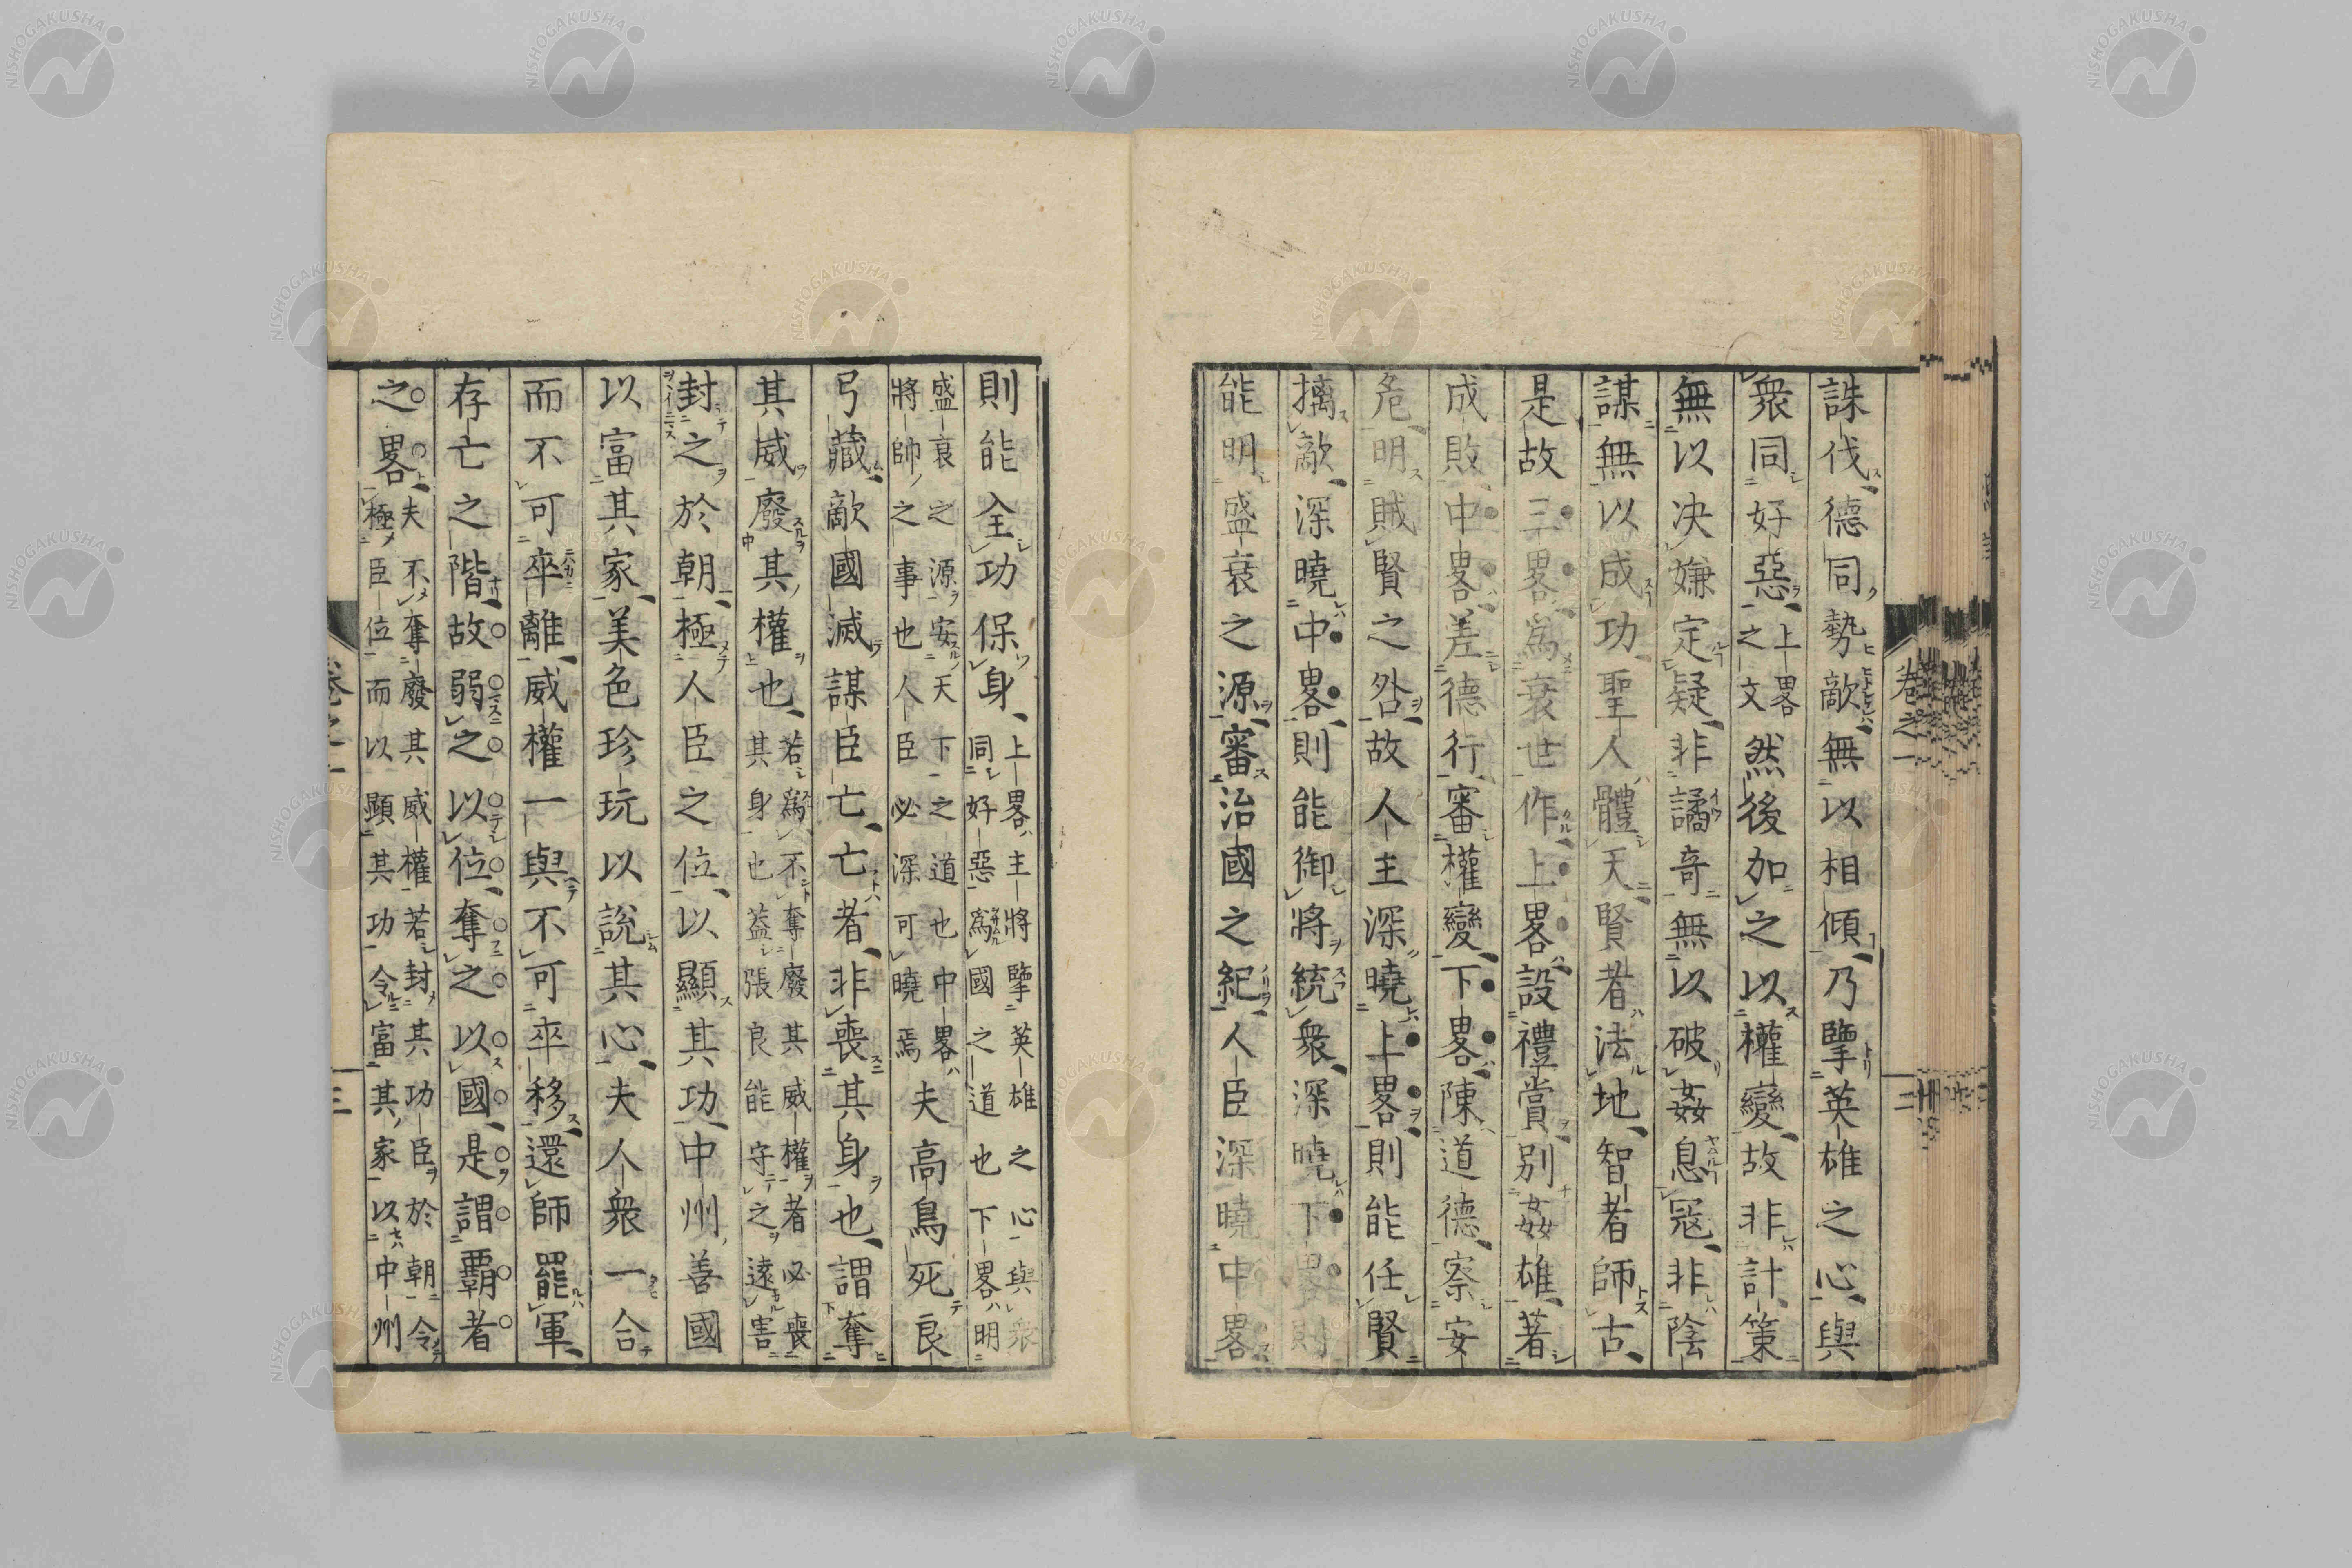 誅伐德同勢敵無以相傾乃擥英雄之心與
衆同好惡上畧之文然後加之以權變故非計策
無以决嫌定疑非譎奇無以破姦息寇非陰
謀無以成功聖人體天賢者法地智者師古
是故三畧爲衰世作上畧設禮賞別姦雄著
成敗中畧差德行審權變下畧陳道德察安
危明賊賢之咎故人主深曉上畧則能任賢
擒敵深曉中畧則能御將統衆深曉下畧則
能明盛衰之源審治國之紀人臣深曉中畧
則能全功保身上畧主將擥英雄之心與衆
同好惡爲國之道也下畧明
盛衰之源安天下之道也中畧
將帥之事也人臣必深可曉焉夫高鳥死良
弓藏敵國滅謀臣亡亡者非喪其身也謂奪
其威廢其權也若爲不奪廢其威權者必喪
其身也葢張良能守之遠害
封之於朝極人臣之位以顯其功中州善國
以富其家美色珍玩以說其心夫人衆一合
而不可卒離威權一與不可卒移還師罷軍
存亡之階故弱之以位奪之以國是謂霸者
之畧夫不奪廢其威權若封其功臣於朝令
極臣位而以顯其功令富其家以中州
卷之一
二
NISHOGAKUSHA